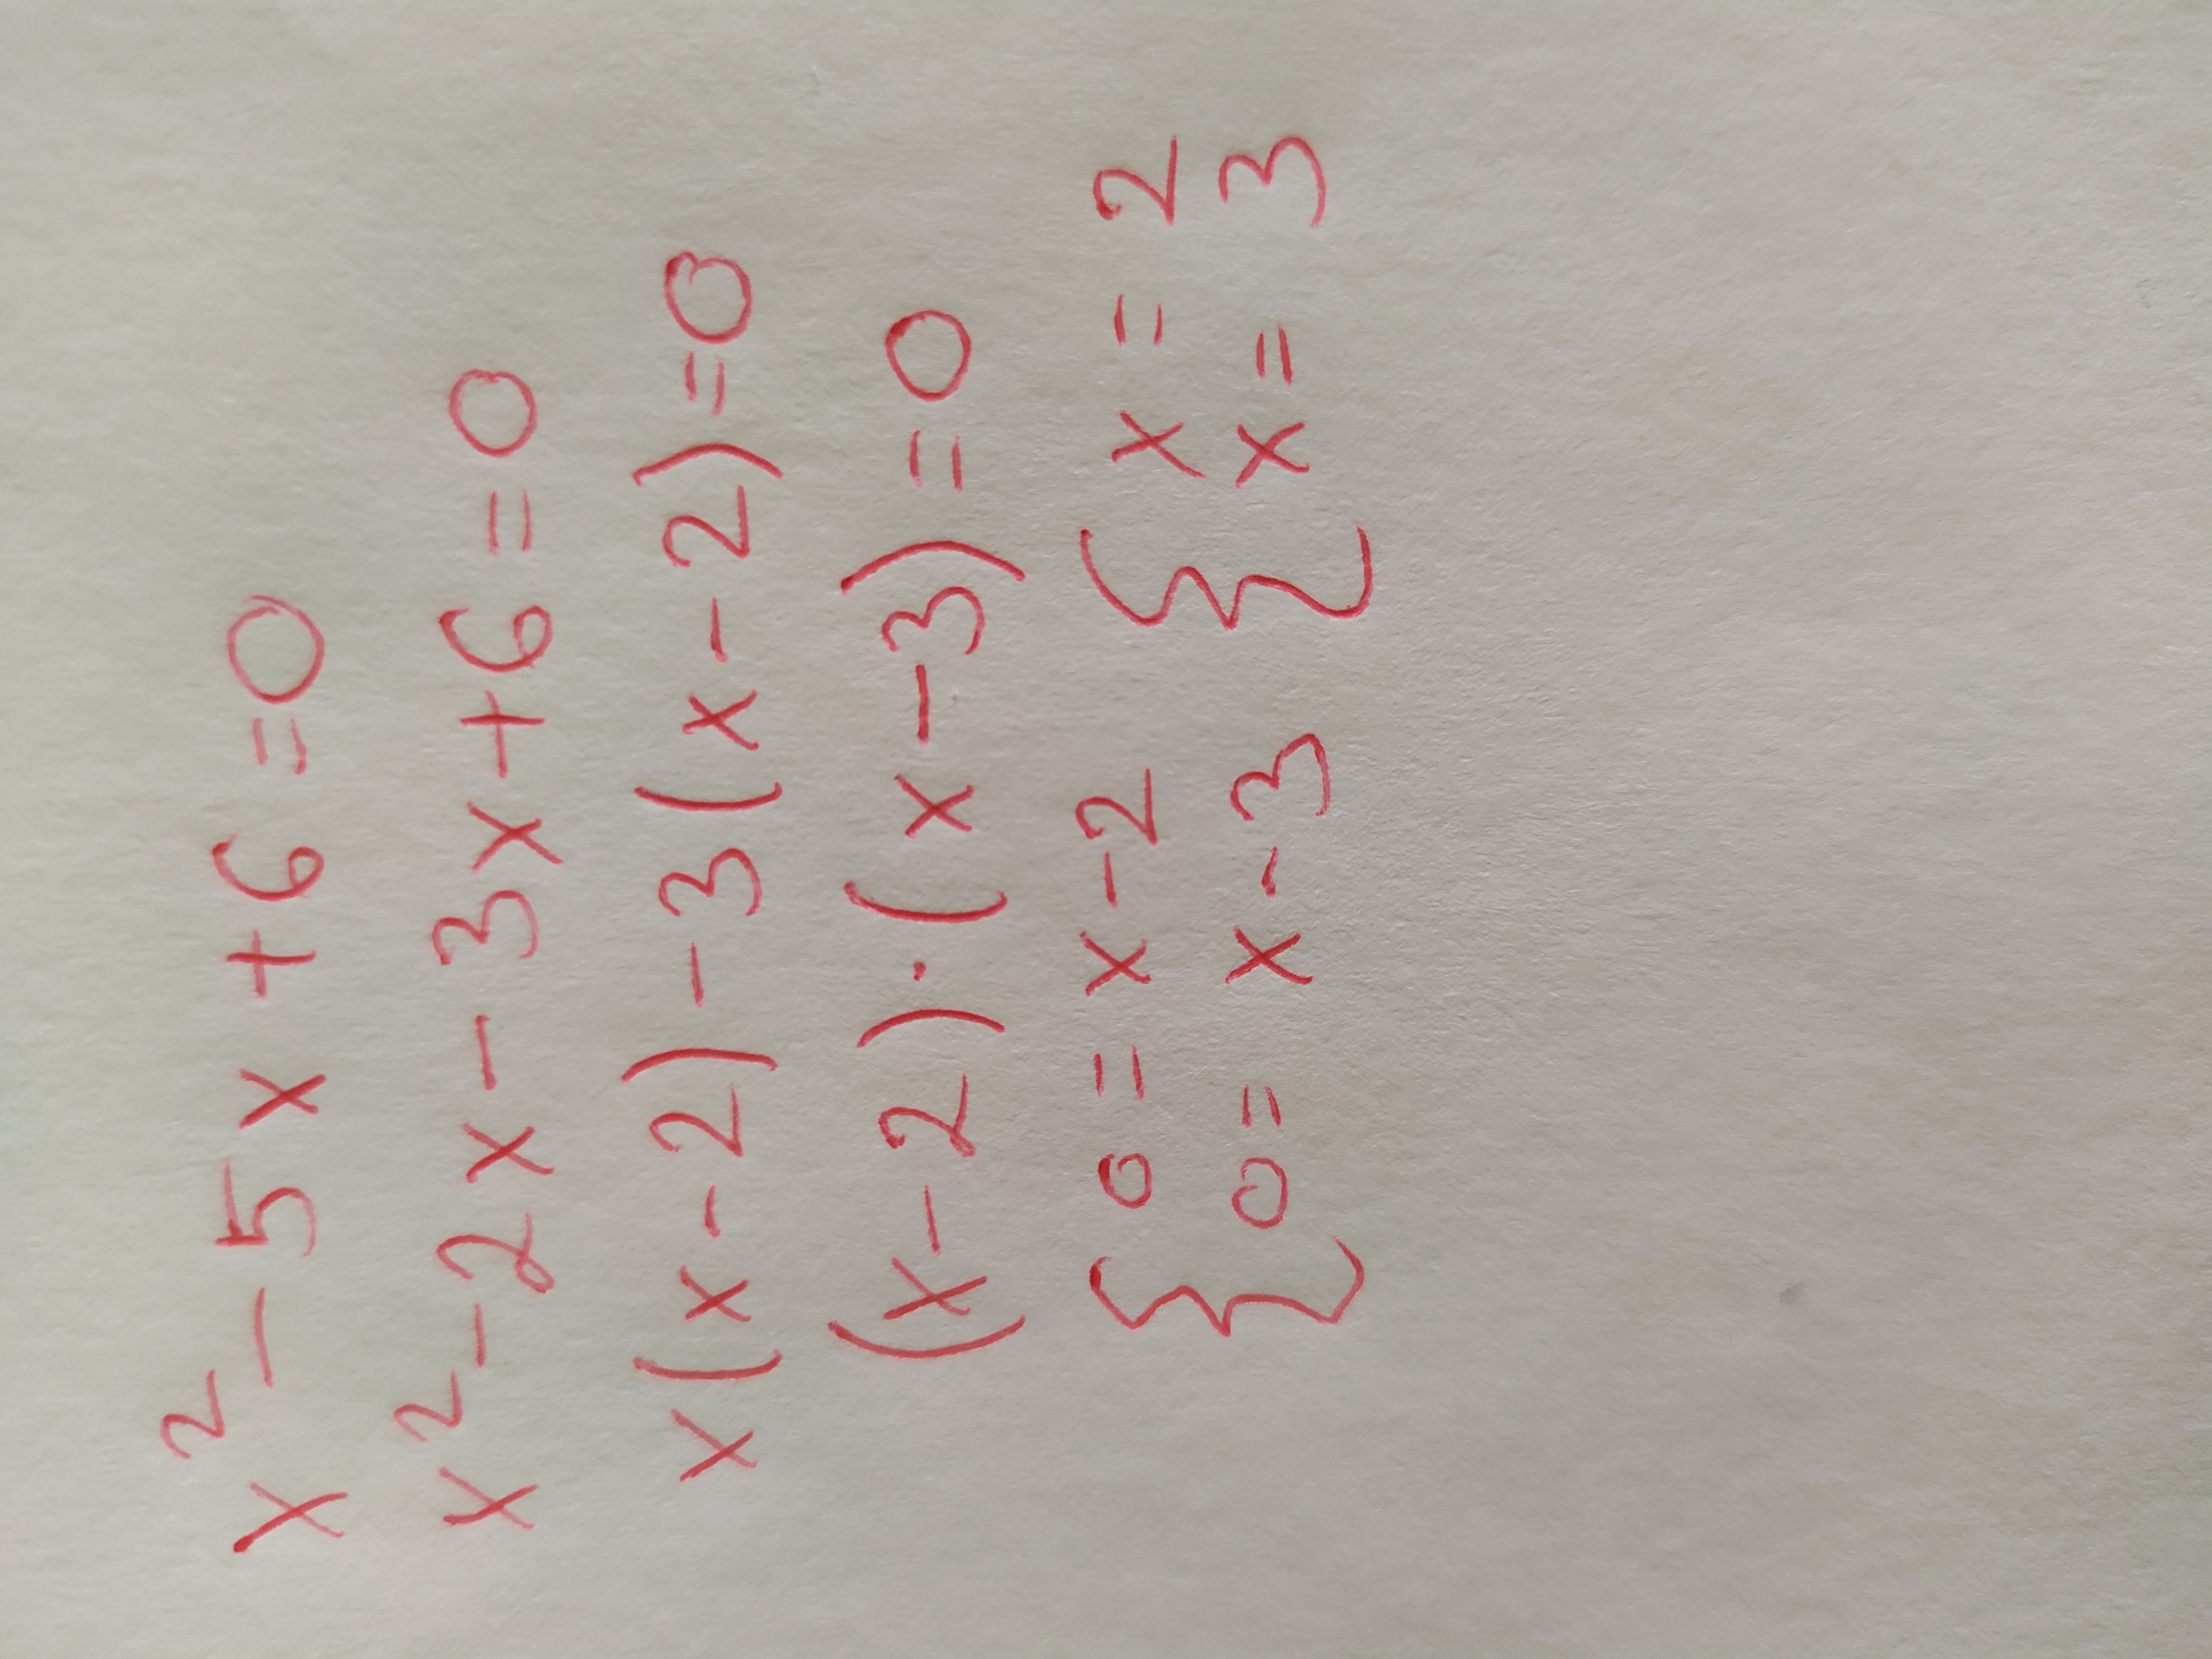 x² - 5x + 6 = 0
x² - 2x - 3x + 6 = 0
x(x - 2) - 3(x - 2) = 0
(x - 2) · (x - 3) = 0
{ 0 = x - 2 { x = 2
0 = x - 3 x = 3